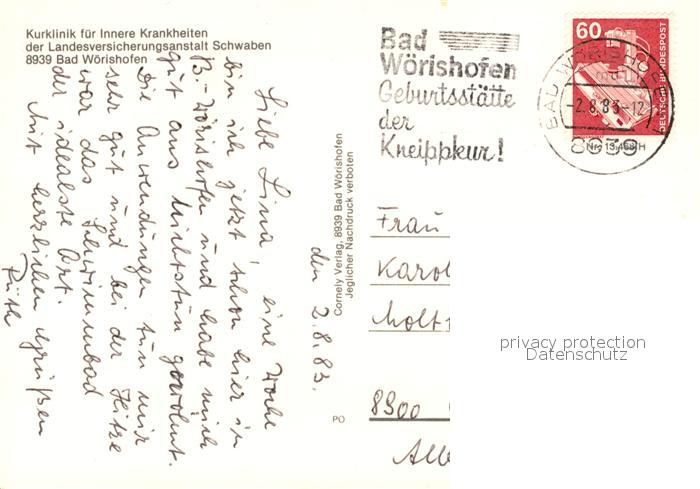 Kurklinik für Innere Krankheiten
der Landesversicherungsanstalt Schwaben
8939 Bad Wörishofen
Bad
Wörishofen
Geburtsstätte
der
Kneippkur!
60
DEUTSCHE BUNDESPOST
BAD WÖRISHOFEN
-2.8.83-12
8939
Nr. 13,468 H
den 2.8.83.
Liebe Lina, eine Woche
bin ich jetzt schon hier in
B.-Wörishofen und habe mich
gut ans Nichtstun gewöhnt.
Die Anwendungen tun mir
sehr gut und bei der Hitze
war das Schwimmbad
der idealste Ort.
Mit herzlichen Grüßen
Ruth
Cornely Verlag, 8939 Bad Wörishofen
Jeglicher Nachdruck verboten
PO
Frau
Karol
Molt
8900
privacy protection
Datenschutz